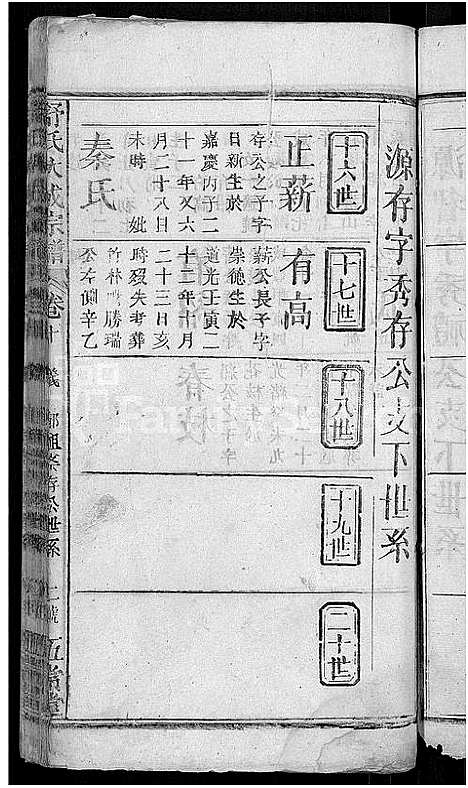 源存字秀存公支下世系
十六世
正薪
存公之子字
日新生於
嘉慶丙子二
十一年又六
月二十八日
未時 妣
秦氏
十七世
有高
薪公長子字
崇德生於
道光壬寅二
十二年十月
二十三日亥
時歿失考葬
竹林 勝瑞
公左側辛乙
十八世
十九世
二十世
舒氏大成宗譜 卷十